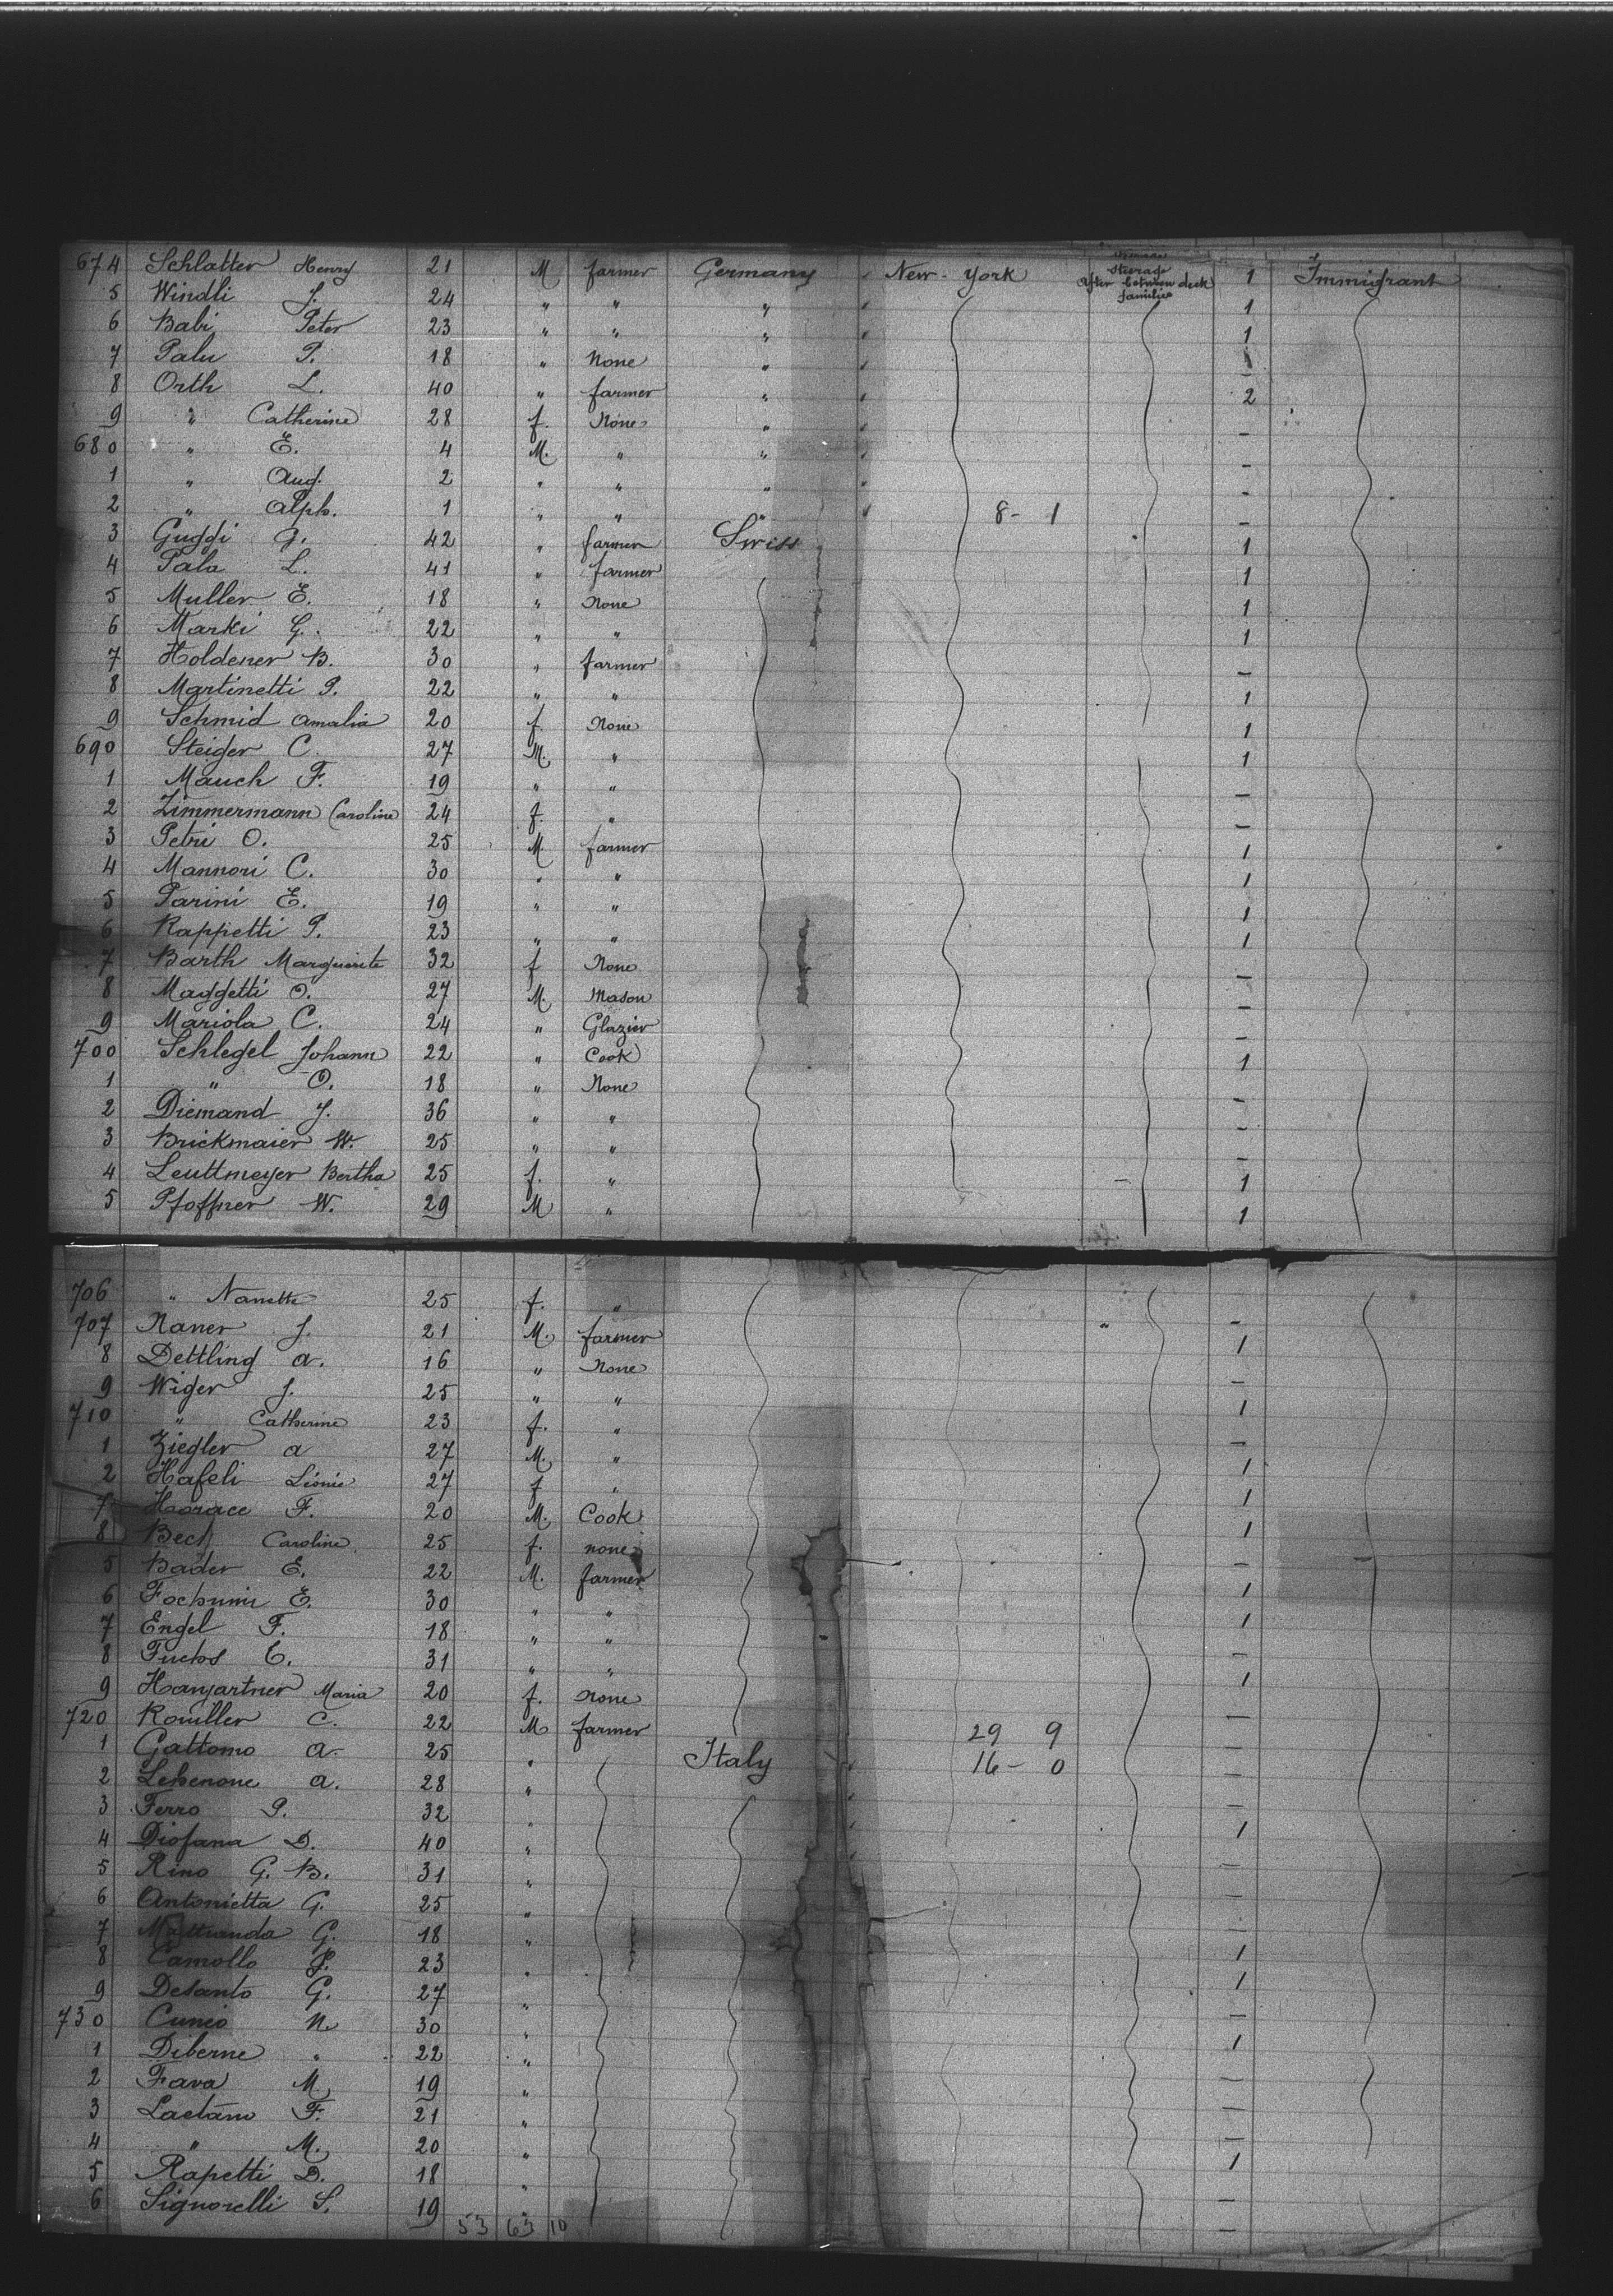 674 Schlatter Henry 21 M farmer Germany " New-York Steerage After between deck families 1 Immigrant
5 Windli J. 24 " " " " 1
6 Babi Peter 23 " " " " 1
7 Palu P. 18 " None " "
8 Orth L. 40 " farmer " " 2
9 " Catherine 28 f. None " " –
680 " E. 4 M. " " " –
1 " Aug. 2 " " " " –
2 " Alph. 1 " " " " 8 - 1 –
3 Guggi G. 42 " farmer Swiss 1
4 Pala L. 41 " farmer 1
5 Muller E. 18 " None 1
6 Marki G. 22 " " 1
7 Holdener B. 30 " farmer –
8 Martinetti P. 22 " " 1
9 Schmid Amalia 20 f. None 1
690 Steiger C. 27 M. " 1
1 Mauch F. 19 " " –
2 Zimmermann Caroline 24 f. " –
3 Petri O. 25 M. farmer 1
4 Mannori C. 30 " " 1
5 Parini E. 19 " " 1
6 Rappetti P. 23 " " 1
7 Barth Marguerite 32 f None –
8 Maggetti O. 27 M. Mason –
9 Mariola C. 24 " Glazier –
700 Schlegel Johann 22 " Cook 1
1 " O. 18 " None –
2 Diemand J. 36 " " –
3 Brickmaier W. 25 " " –
4 Leuttmeyer Bertha 25 f. " 1
5 Pfoffner W. 29 M " 1
706 " Nanette 25 f. " –
707 Naner J. 21 M. farmer 1
8 Dettling A. 16 " None –
9 Wiger J. 25 " " 1
710 " Catherine 23 f. " –
1 Ziegler A 27 M. " 1
2 Hafeli Léonie 27 f " 1
7 Horace F. 20 M. Cook 1
8 Bech Caroline 25 f. none –
5 Bader E. 22 M. farmer 1
6 Fochumi E. 30 " " 1
7 Engel F. 18 " " –
8 Fuchs E. 31 " " 1
9 Hangartner Maria 20 f. None –
720 Rouiller C. 22 M farmer 29 9 –
1 Gattomo A. 25 " Italy " 16 - 0 –
2 Lebenone A. 28 " –
3 Ferro P. 32 " 1
4 Diofana D. 40 " –
5 Rino G. B. 31 " –
6 Antonietta G. 25 " –
7 G. 18 " 1
8 Camollo J. 23 " 1
9 Desanto G. 27 " –
730 Cuneo N. 30 " 1
1 Diberne " 22 " –
2 Fava M. 19 " –
3 Laetano F. 21 " –
4 " M. 20 " 1
5 Rapetti D. 18 " –
6 Signorelli S. 19 " –
53 63 10